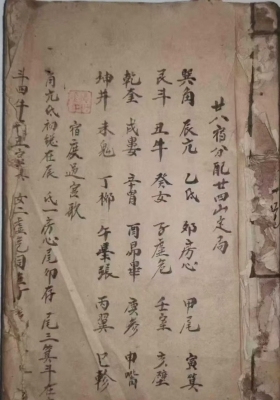 廿八宿分配廿四山定局
巽角 辰亢 乙氐 卯房心 甲尾 寅箕
艮斗 丑牛 癸女 子虛危 壬室 亥壁
乾奎 戌婁 辛胃 酉昴畢 庚參 申觜
坤井 未鬼 丁柳 午星張 丙翼 巳軫
宿度過宮歌
角亢氐初號在辰 氐一房心尾卯存 尾三箕斗
斗四牛 女二虛危同